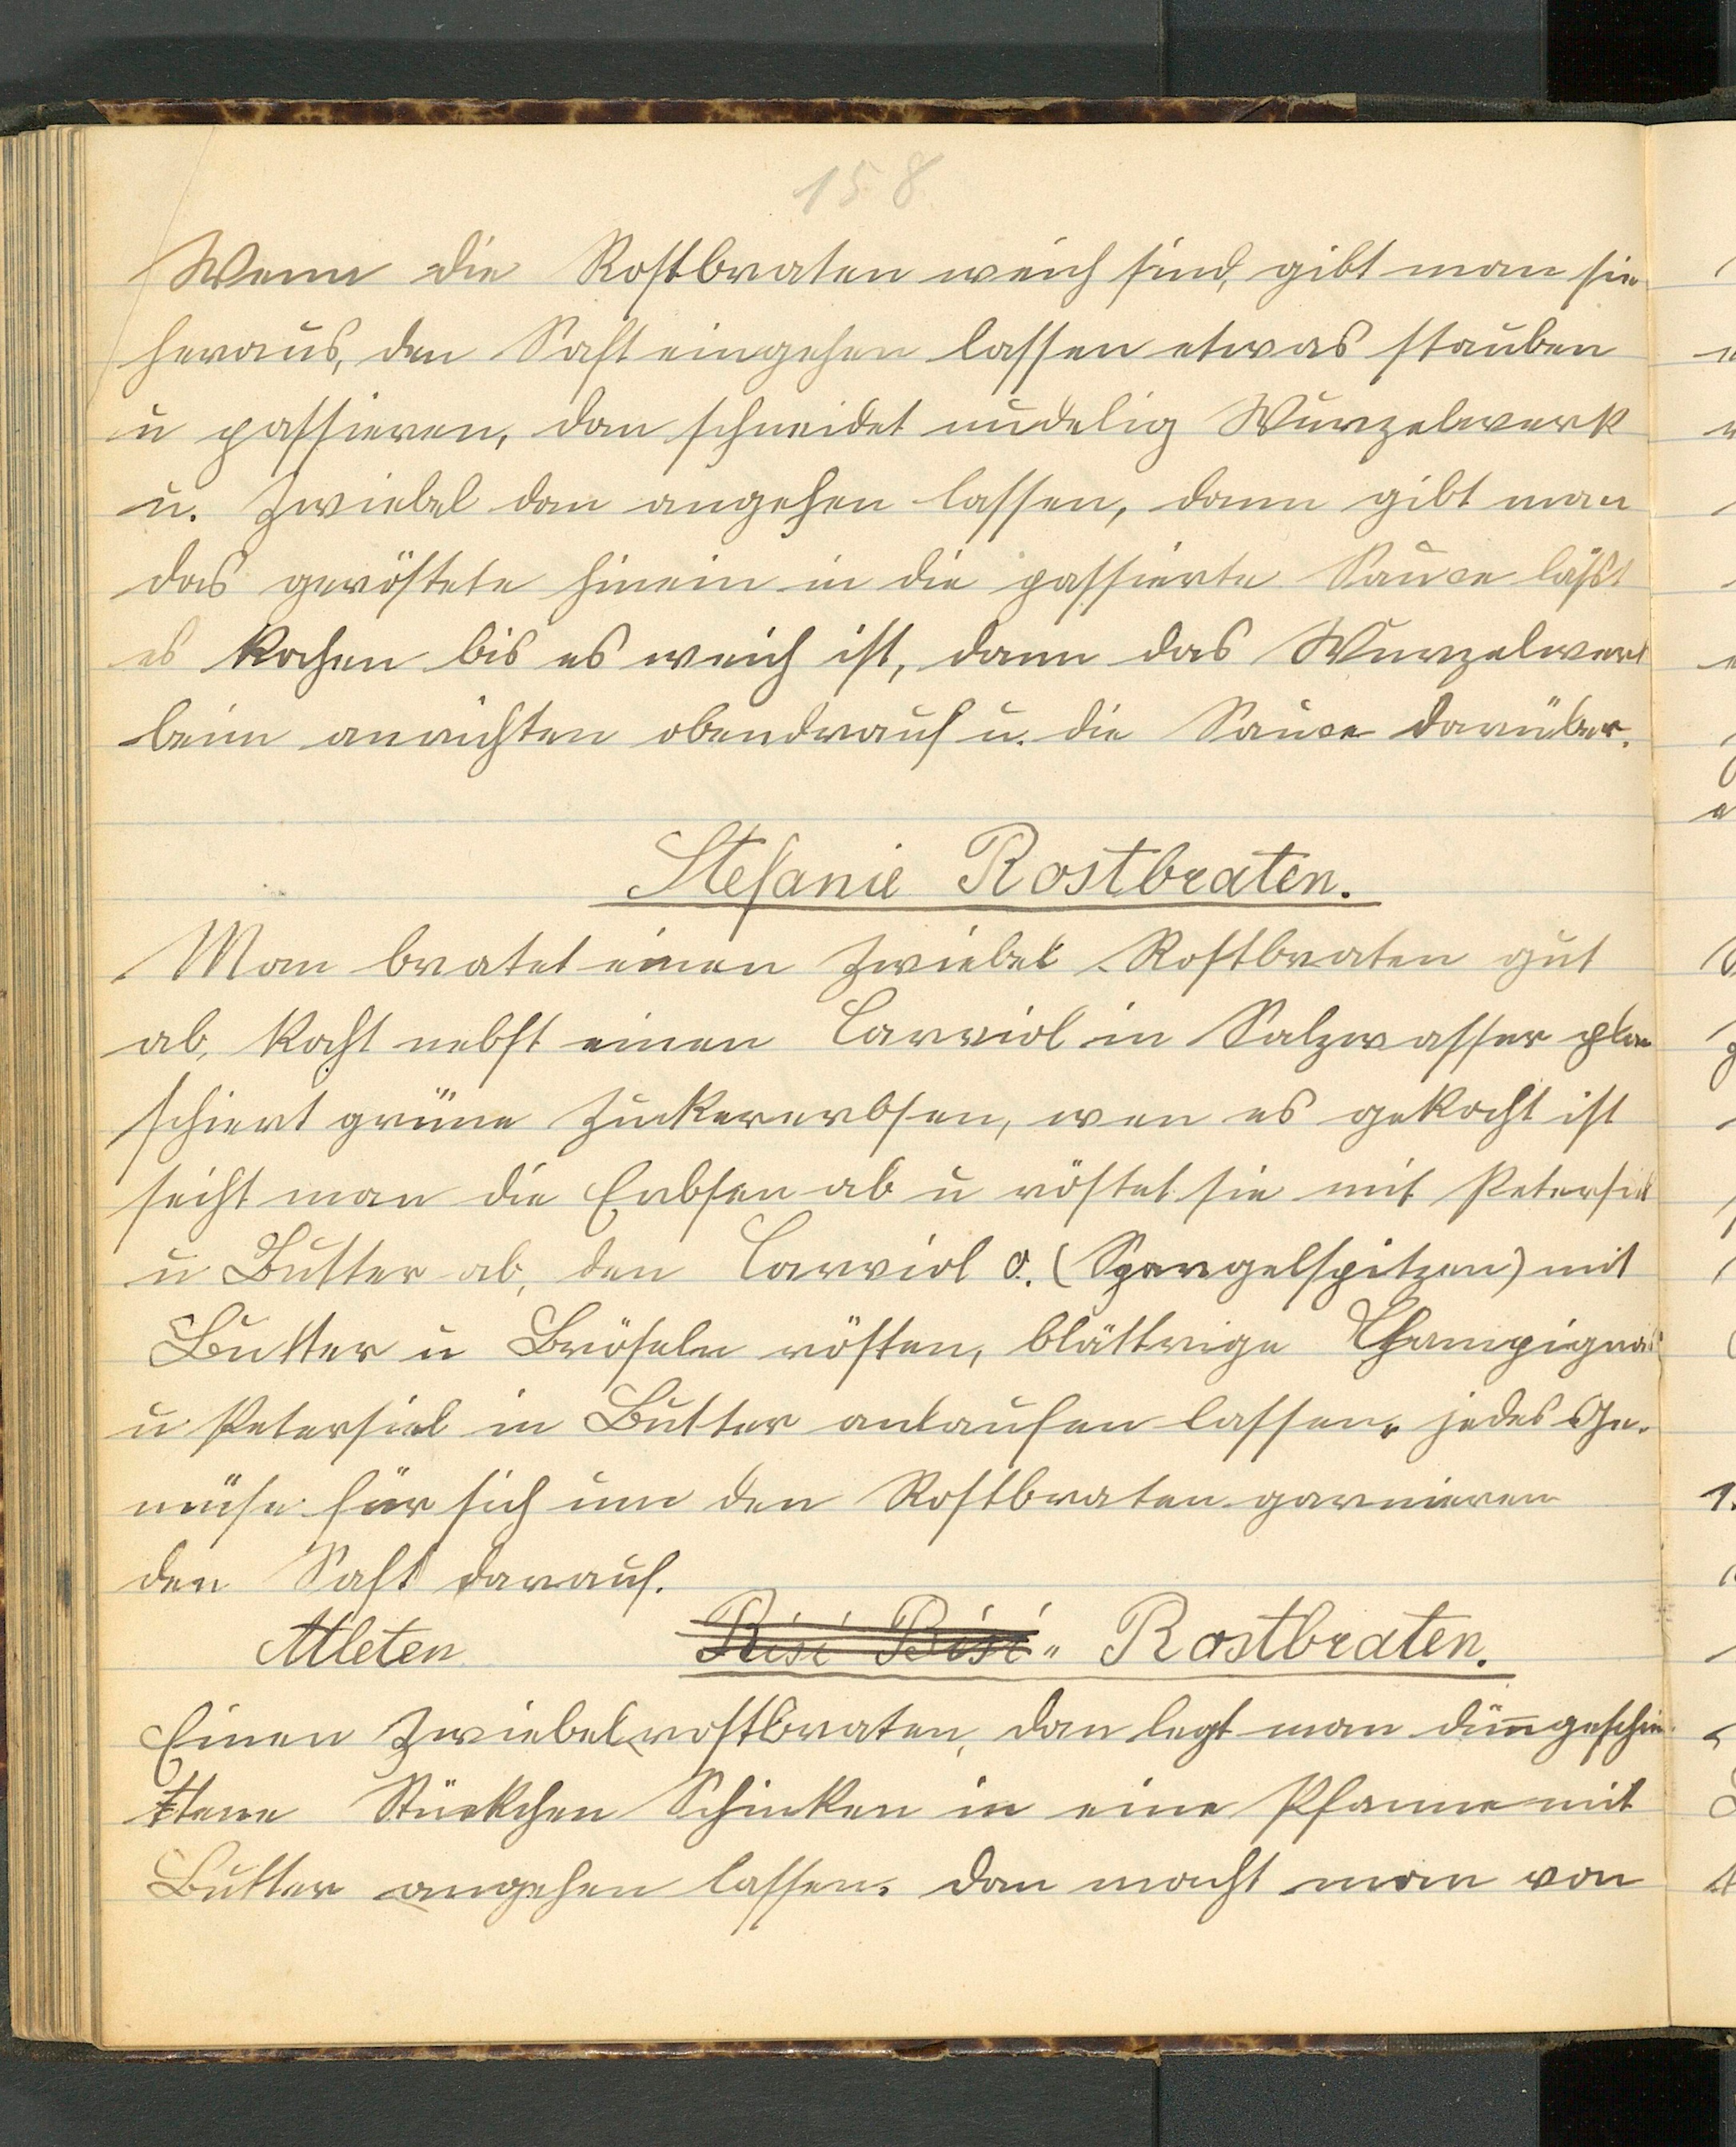 158
Wenn die Rostbraten weich sind, gibt man sie
heraus, den Saft eingehen lassen etwas stauben
u passieren, dan schneidet nudelig Wurzelwerk
u. Zwiebel dan angehen lassen, dann gibt man
das geröstete hinein in die passierte Sauce läßt
es kochen bis es weich ist, dann das Wurzelwerk
beim anrichten obendrauf u. die Sauce darüber.
Stefanie Rostbraten.
Man bratet einen Zwiebel-Rostbraten gut
ab, kocht nebst einen Carviol in Salzwasser plan
schiert grüne Zuckererbsen, wen es gekocht ist
seiht man die Erbsen ab u röstet sie mit Petersiel
u Butter ab, den Carviol o. (Spargelspitzen) mit
Butter u Bröseln rösten, blättrige Champignos
u Petersiel in Butter anlaufen lassen, jedes Ge-
müse für sich um den Rostbraten garnieren
den Saft darauf.
Atleten Risi Bisi " Rostbraten.
Einen Zwiebelrostbraten, dan legt man dünngeschni-
ttene Stückchen Schinken in eine Pfanne mit
Butter angehen lassen. dan macht man von